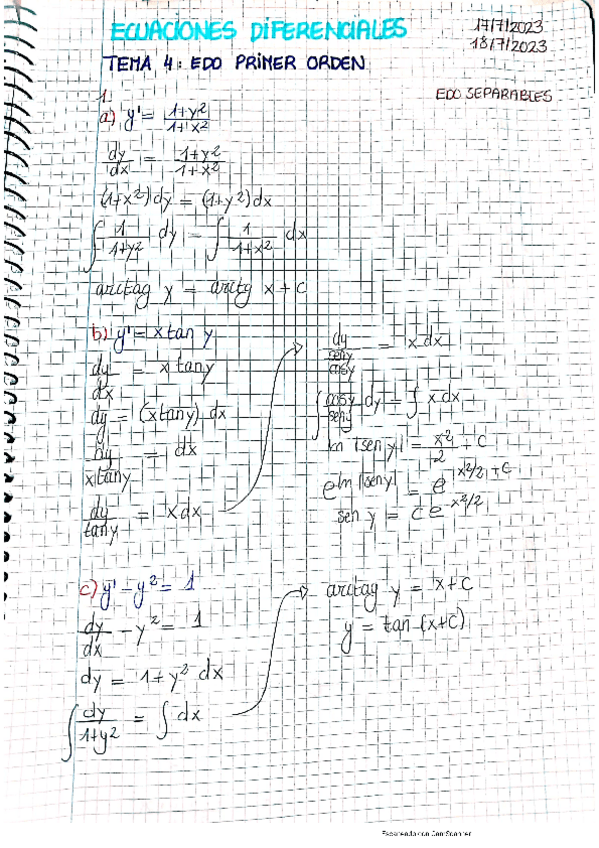 ECUACIONES DIFERENCIALES
17/7/2023
18/7/2023
TEMA 4: EDO PRIMER ORDEN
EDO SEPARABLES
1.
a) y' = (1+y²)/(1+x²)
dy/dx = (1+y²)/(1+x²)
(1+x²)dy = (1+y²)dx
∫ 1/(1+y²) dy = ∫ 1/(1+x²) dx
arctag y = arctg x + C
b) y' = x tan y
dy/dx = x tan y
dy = (x tan y) dx
dy/(x tan y) = dx
dy/tan y = x dx
dy/(sen y/cos y) = x dx
∫ cos y/sen y dy = ∫ x dx
ln |sen y| = x²/2 + C
e^ln |sen y| = e^x²/2 + C
sen y = C e^-x²/2
c) y' - y² = 1
dy/dx - y² = 1
dy = 1+y² dx
∫ dy/(1+y²) = ∫ dx
arctag y = x+C
y = tan (x+C)
Escaneado con CamScanner